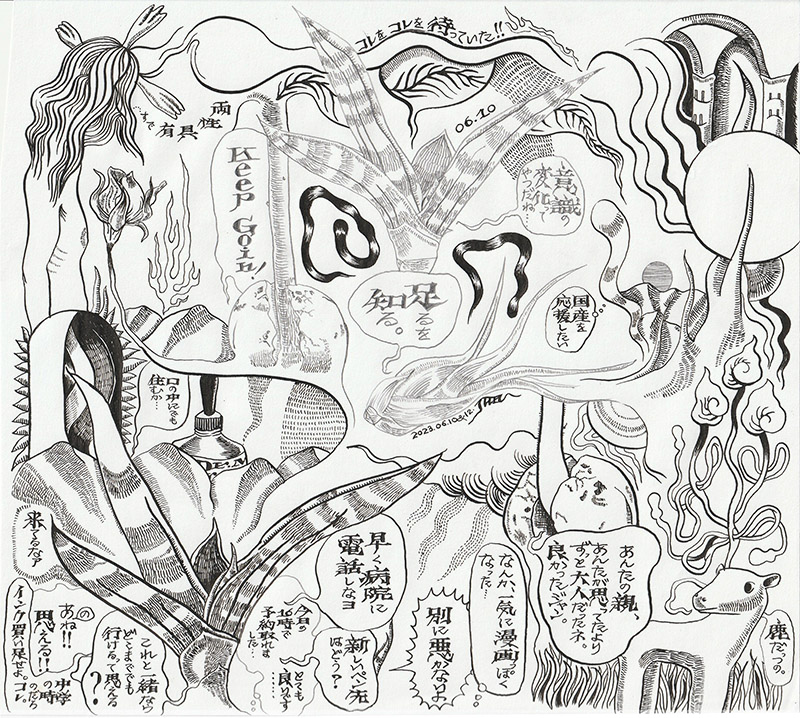 コレをコレを待っていた!!
06.10
両性
具有
Keep Goin!
意識の
変化って
やつだね…
足るを
知る。
国産を
応援したい
口の中にでも
住むか…
2023.06.10&12
来てるなァ
あの
あね!!
思える!!
中学
の時
のだろ
インク買い足せよ。コレ。
これと一緒なら
どこまででも
行けるって思える
?
早く病院に
電話しなヨ
今日の
16時で
予約取れま
した…
新しいペン先
はどう?
とても
良いです
……
なんか、一気に漫画っぽく
なった…
別に悪かないよ
あんたの親、
あんたが思ってたより
ずっと大人だったネ。
良かったジャン。
鹿だっつの。